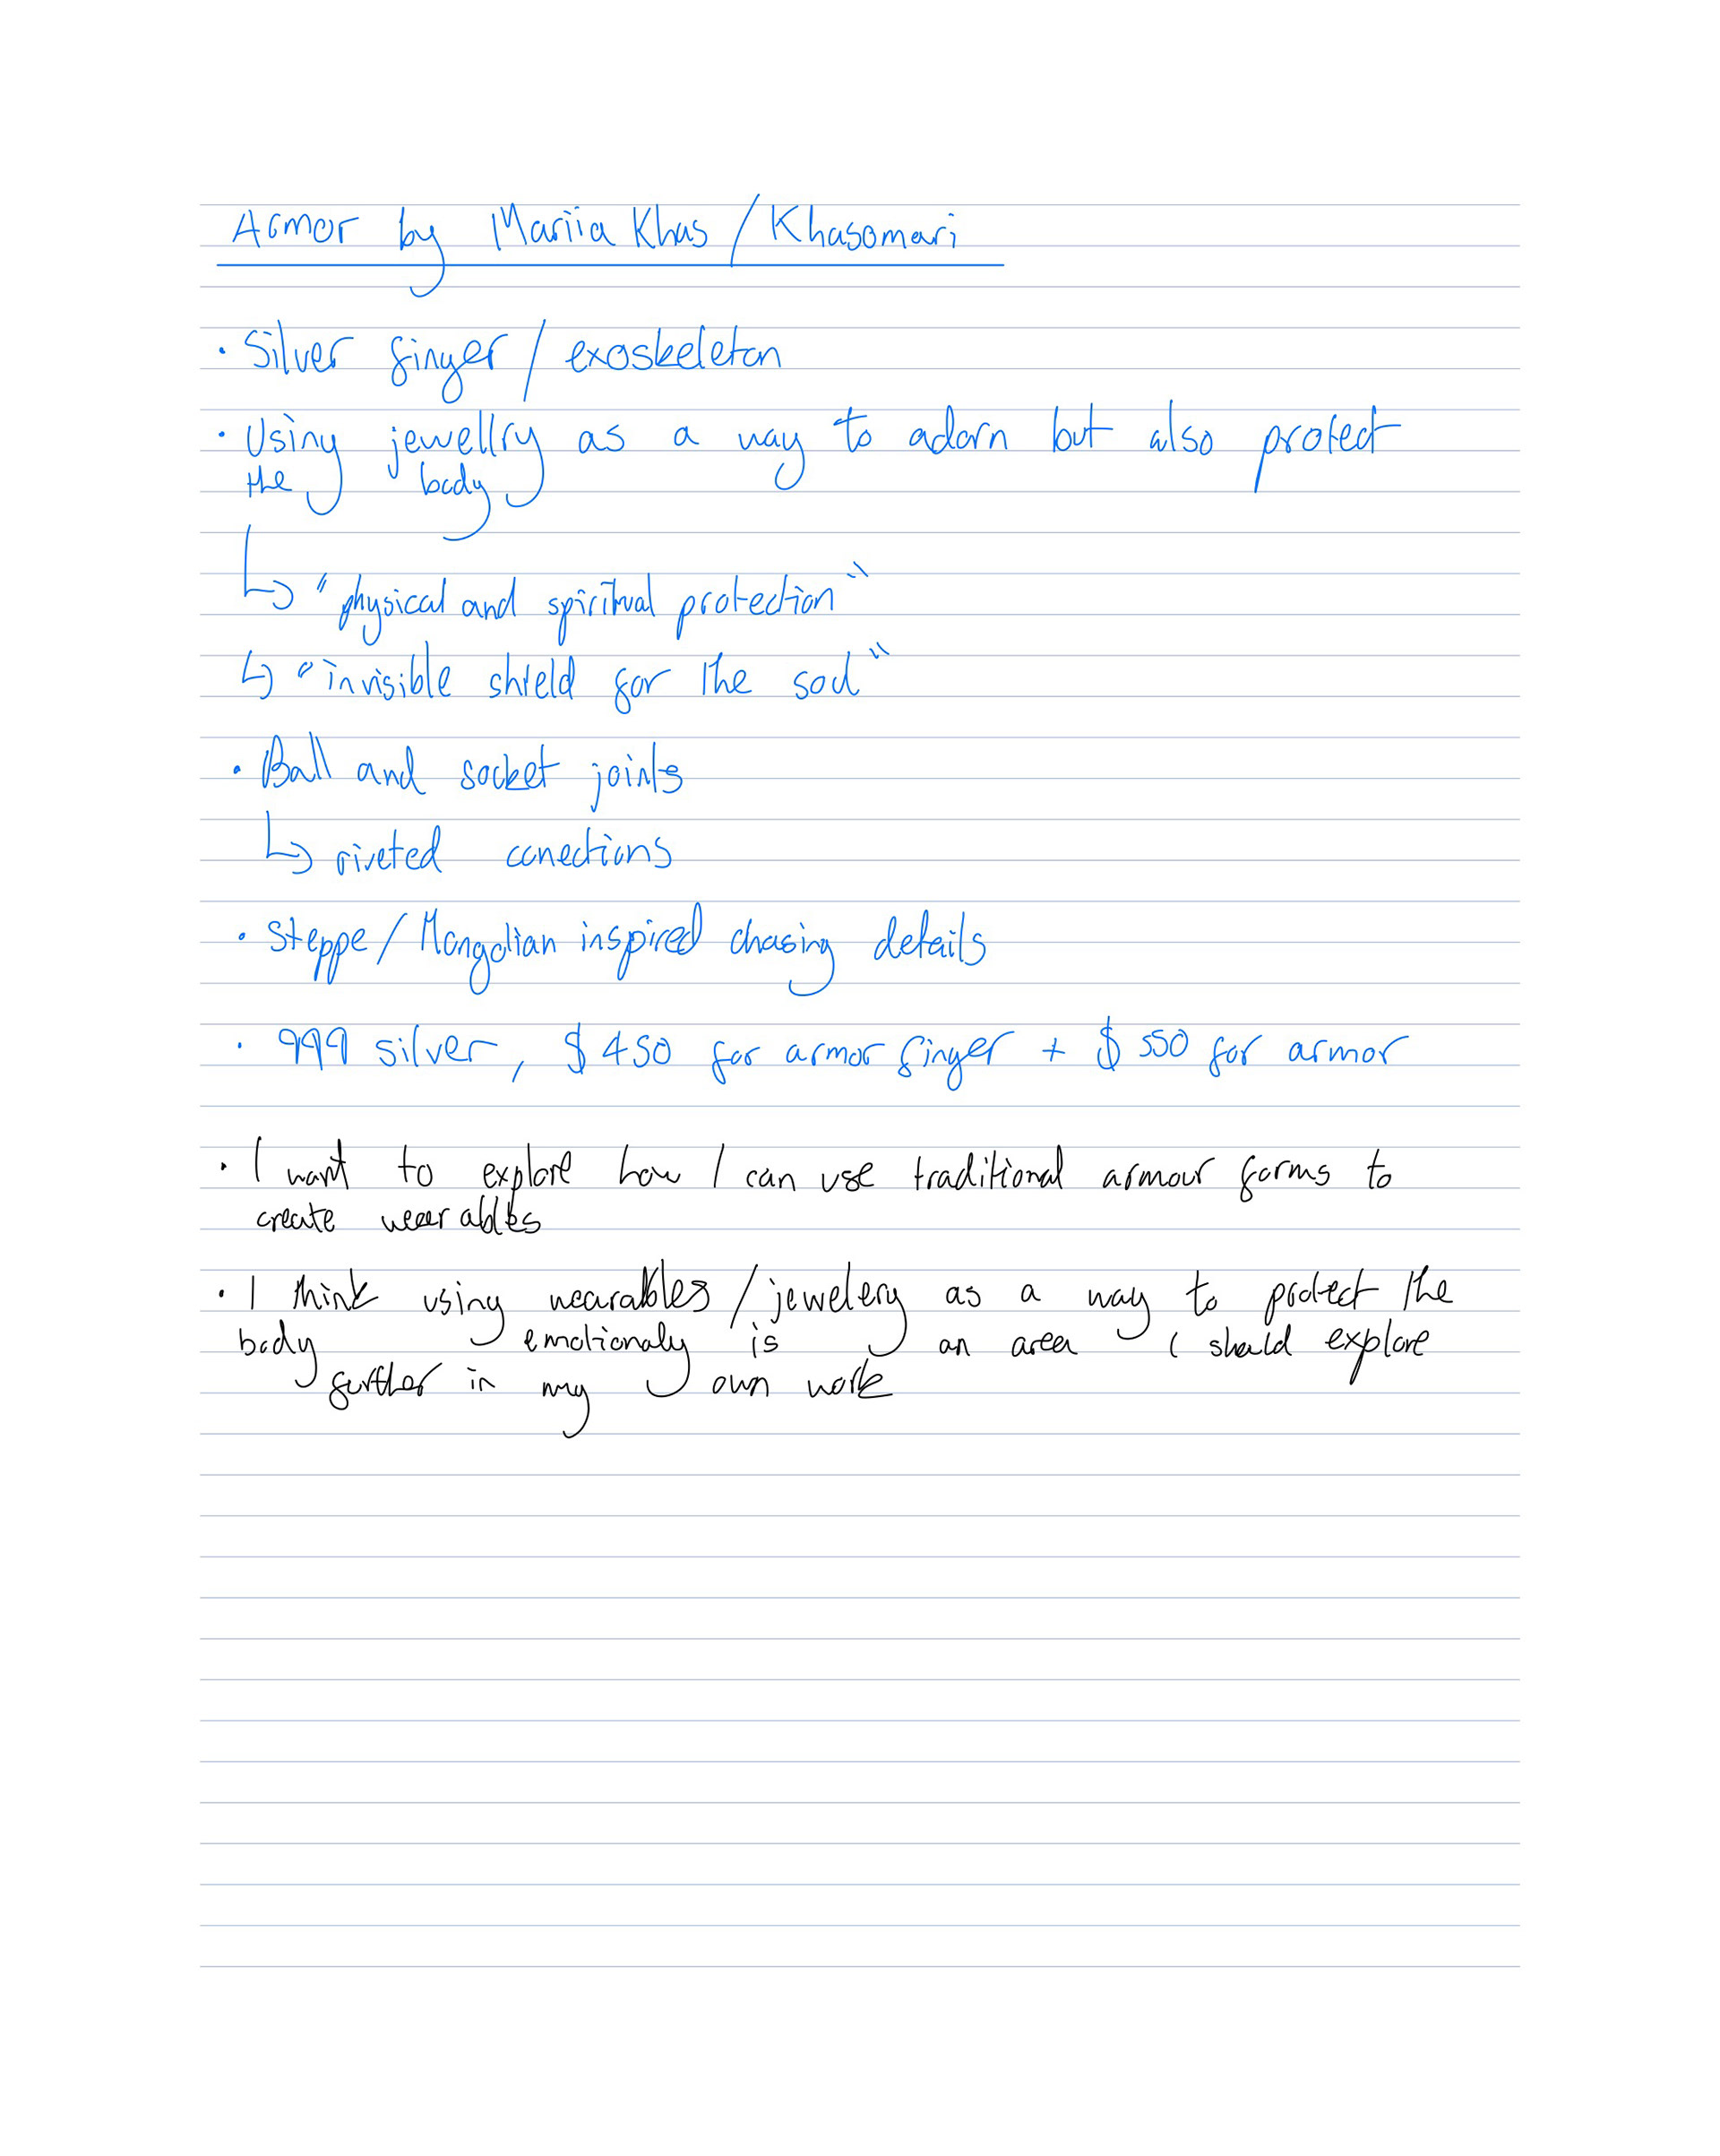 Armor by Mariia Khas / Khasomari
• Silver finger / exoskeleton
• Using jewellry as a way to adorn but also protect
the body
↳ "physical and spiritual protection"
↳ "invisible shield for the soul"
• Ball and socket joints
↳ riveted conections
• Steppe / Mongolian inspired chasing details
• 999 silver, $450 for armor finger + $550 for armor
• I want to explore how I can use traditional armour forms to
create wearables
• I think using wearables / jewelery as a way to protect the
body emotionaly is an area I should explore
further in my own work